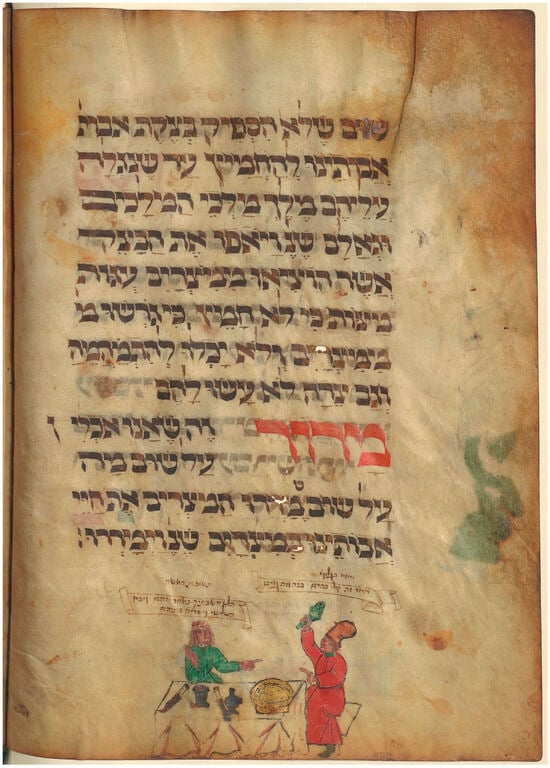 שום שלא הספיק בצקת אבות
אבותינו להחמיץ עד שנגלה
עליהם מלך מלכי המלכים
וגאלם שנ ויאפו את הבצק
אשר הוציאו ממצרים עגות
מצות כי לא חמץ כי גרשו מ
ממצרים ולא יכלו להתמהמה
וגם צדה לא עשו להם
מרור זה שאנו אכלי
על שום מה
על שום שמררו המצרים את חיי
אבותינו במצרים שנ וימררו: